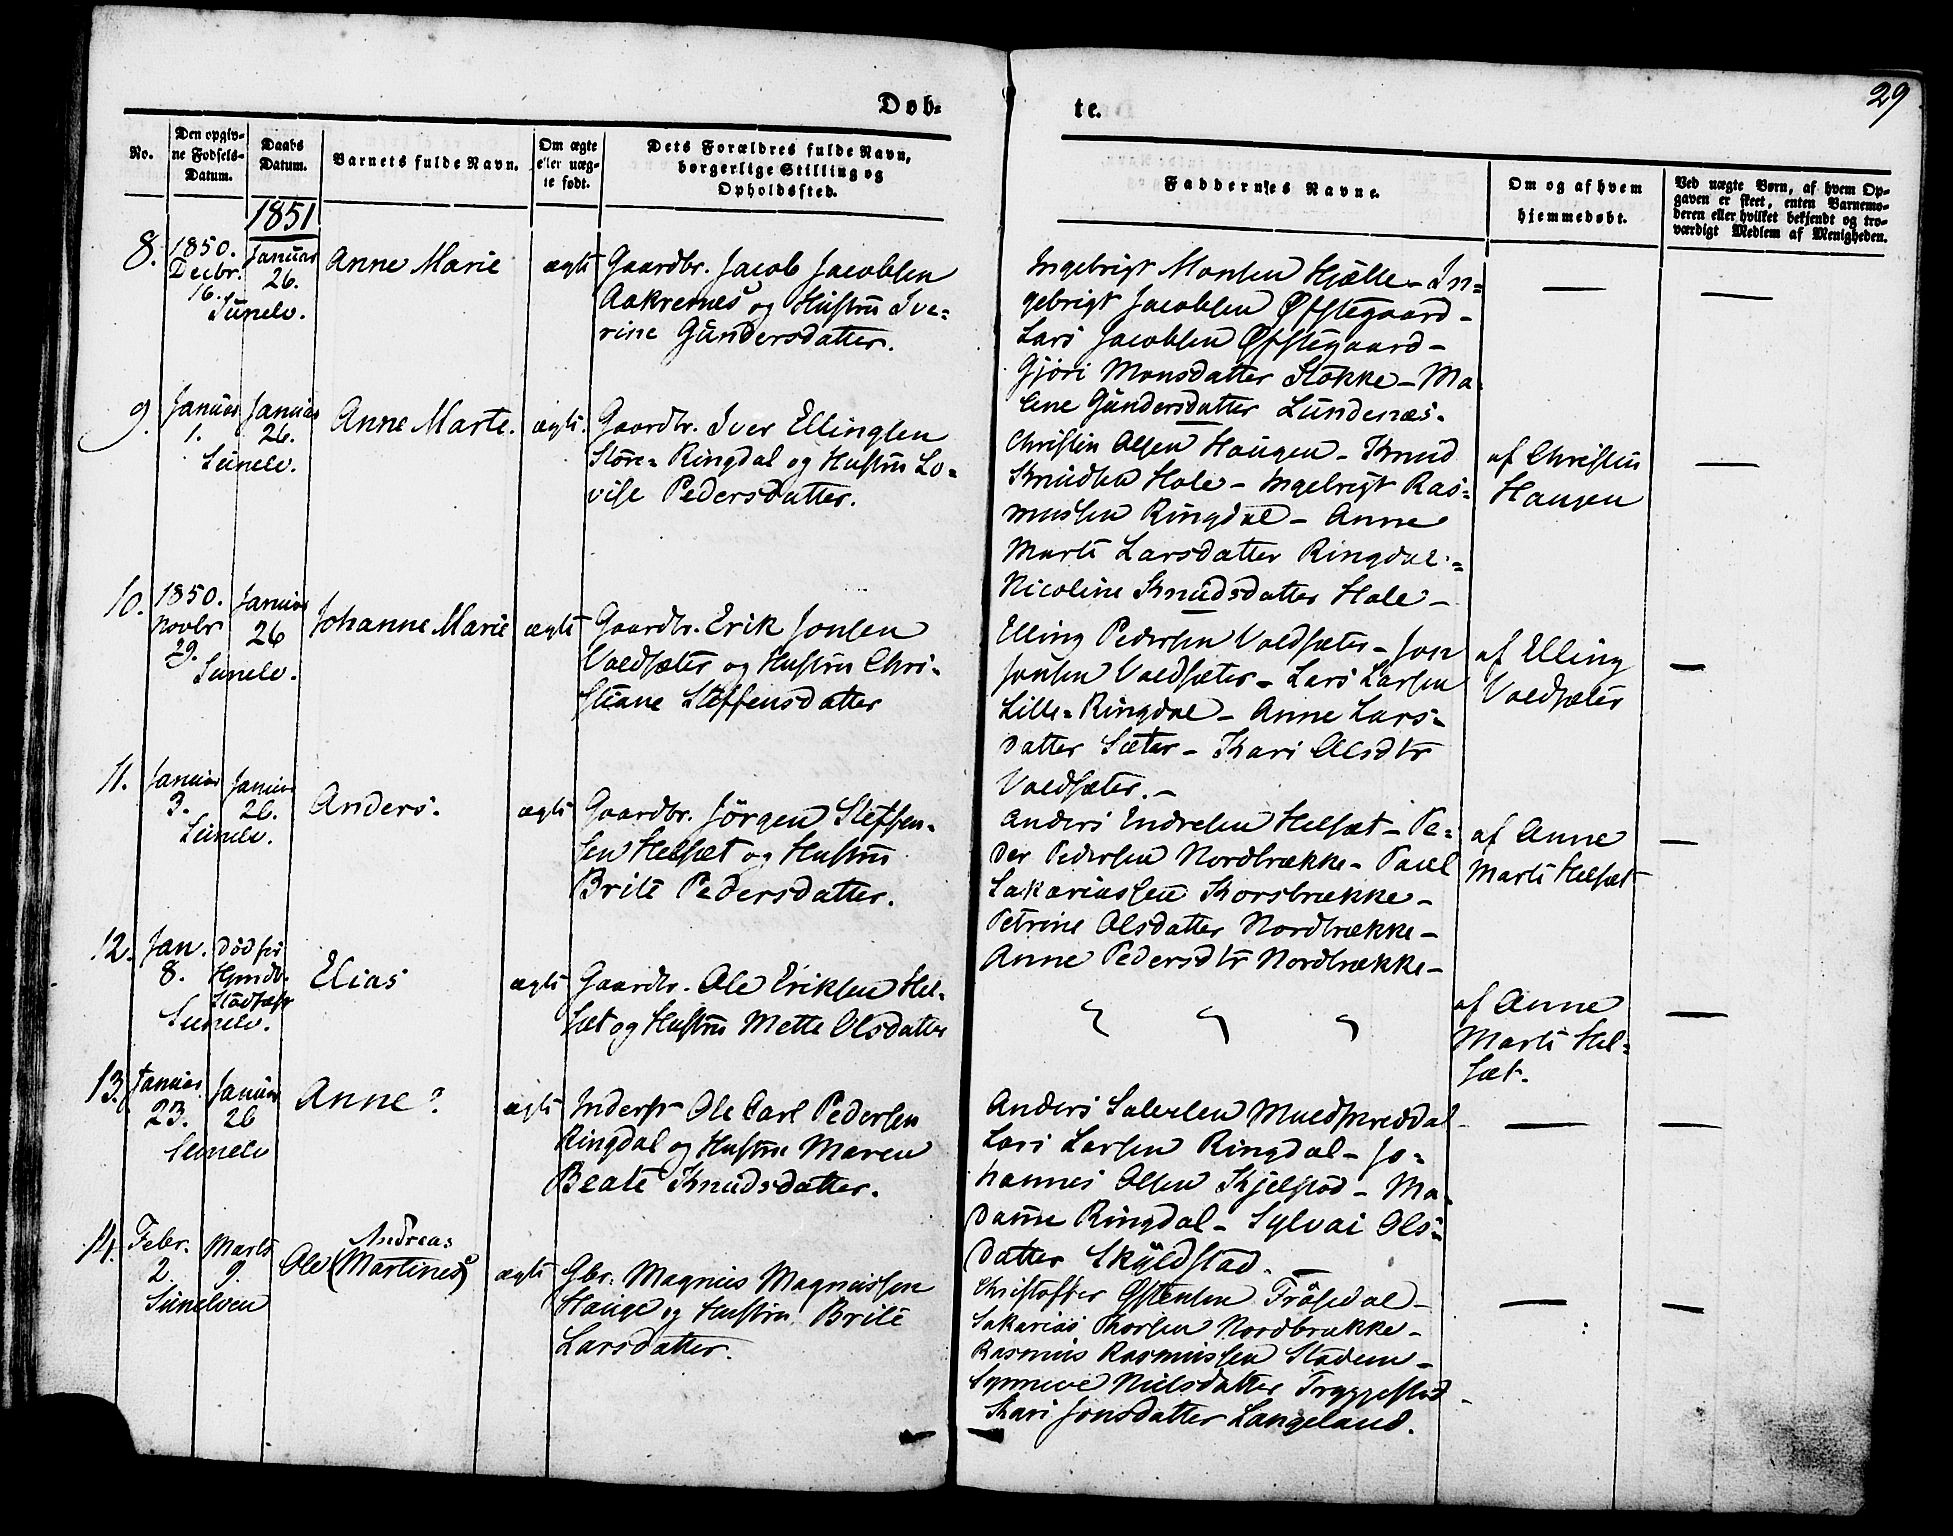 29
Døb-
te.
No.
Den opgiv-
ne Fødsels-
Datum.
Daabs
Datum.
Barnets fulde Navn.
Om ægte
eller uæg-
te født.
Dets Forældres fulde Navn,
borgerlige Stilling og
Opholdssted.
Faddernes Navne.
Om og af hvem
hjemmedøbt.
Ved uægte Børn, af hvem Op-
gaven er skeet, enten Barnemo-
deren eller hvilket bekjendt og tro-
værdigt Medlem af Menigheden.
1851
8.
1850.
Decbr.
16.
Januar
26.
Sunelv.
Anne Marie
ægte
Gaardbr. Jacob Jacobsen
Aakrenes og Hustru Ive-
rine Gundersdatter.
Ingebrigt Monsen Hjælle - In-
gebrigt Jacobsen Øfstegaard -
Lars Jacobsen Øfstegaard -
Gjøri Monsdatter Stokke - Ma-
lene Gundersdatter Lundenæs.
—
—
9.
Januar
1.
Januar
26.
Sunelv.
Anne Marte.
ægte.
Gaardbr. Iver Ellingsen
Store-Ringdal og Hustru Lo-
vise Pedersdatter.
Christen Olsen Haugen - Knud
Knudsen Hole - Ingebrigt Ras-
mussen Ringdal - Anne
Marte Larsdatter Ringdal -
Nicoline Knudsdatter Hole -
af Christen
Haugen
—
10.
1850.
Novbr
29.
Januar
26
Sunelv.
Johanne Marie
ægte
Gaardbr. Erik Jonsen
Voldsæter og Hustru Chri-
stiane Steffensdatter
Elling Pedersen Voldsæter - Jon
Jonsen Voldsæter - Lars Larsen
Lille-Ringdal - Anne Lars-
datter Sæter - Kari Olsdtr
Voldsæter. -
af Elling
Voldsæter
—
11.
Januar
3.
Januar
26.
Sunelv.
Anders.
ægte
Gaardbr. Jørgen Steffen-
sen Helsæt og Hustru
Brite Pedersdatter.
Anders Endresen Helsæt - Pe-
der Pedersen Nordbrække - Paul
Sakariassen Korsbrække -
Petrine Olsdatter Nordbrække -
Anne Pedersdtr Nordbrække -
af Anne
Marte Helsæt
—
12.
Jan.
8.
Død før
Sunelv.
Elias
ægte
Gaardbr. Ole Eriksen Hel-
sæt og Hustru Mette Olsdatter
af Anne
Marte Hel-
sæt.
—
13.
Januar
23.
Januar
26
Sunelv
Anne?
ægte
Inderst Ole Carl Pedersen
Ringdal og Hustru Maren
Beate Knudsdatter.
Anders
Lars Larsen Ringdal - Jo-
hannes Olsen Kjelstad - Ma-
dame Ringdal - Sylvai Ols-
datter Skyldstad.
—
—
14.
Febr.
2.
Marts
9.
Sunelven
Andreas
Ole (Martines)
ægte
Gbr. Magnus Magnussen
Hauge og Hustru Brite
Larsdatter.
Christoffer Østensen Frøisedal -
Sakarias Thorsen Nordbrække -
Rasmus Rasmussen Stadem -
Synneve Nielsdatter Tryggestad -
Kari Jonsdatter Langeland.
—
—